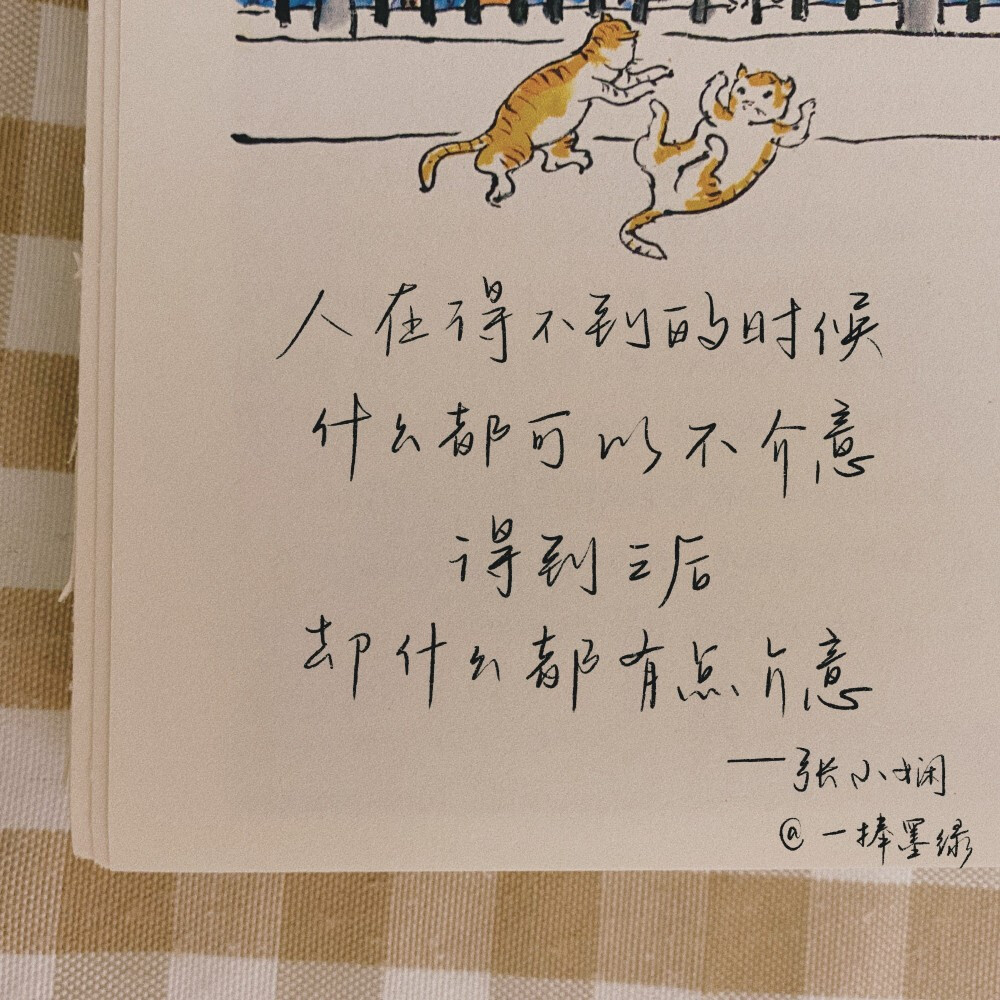 人在得不到的时候
什么都可以不介意
得到之后
却什么都有点介意
——张小娴
@一捧墨绿